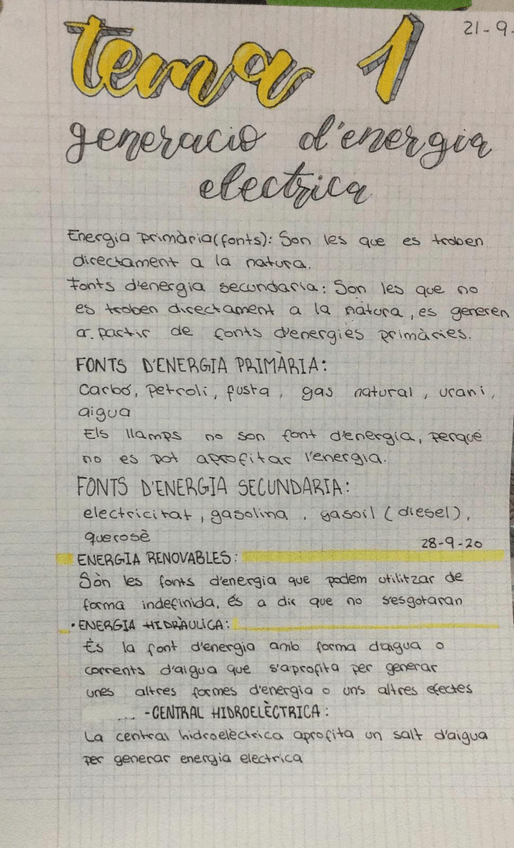 21-9.
tema 1
generacio d'energia
electrica
Energia primària(fonts): Son les que es troben
directament a la natura.
Fonts d'energia secundaria: Son les que no
es troben directament a la natura, es generen
a partir de fonts d'energies primàries.
FONTS D'ENERGIA PRIMÀRIA:
Carbó, petroli, fusta, gas natural, urani,
aigua
Els llamps no son font d'energia, perquè
no es pot aprofitar l'energia.
FONTS D'ENERGIA SECUNDARIA:
electricitat, gasolina, gasoil (diesel),
querosè
28-9-20
ENERGIA RENOVABLES:
Sòn les fonts d'energia que podem utilitzar de
forma indefinida, és a dir que no s'esgotaran
• ENERGIA HIDRÀULICA:
És la font d'energia amb forma d'aigua o
corrents d'aigua que s'aprofita per generar
unes altres formes d'energia o uns altres efectes
-CENTRAL HIDROELÈCTRICA:
La central hidroelèctrica aprofita un salt d'aigua
per generar energia electrica